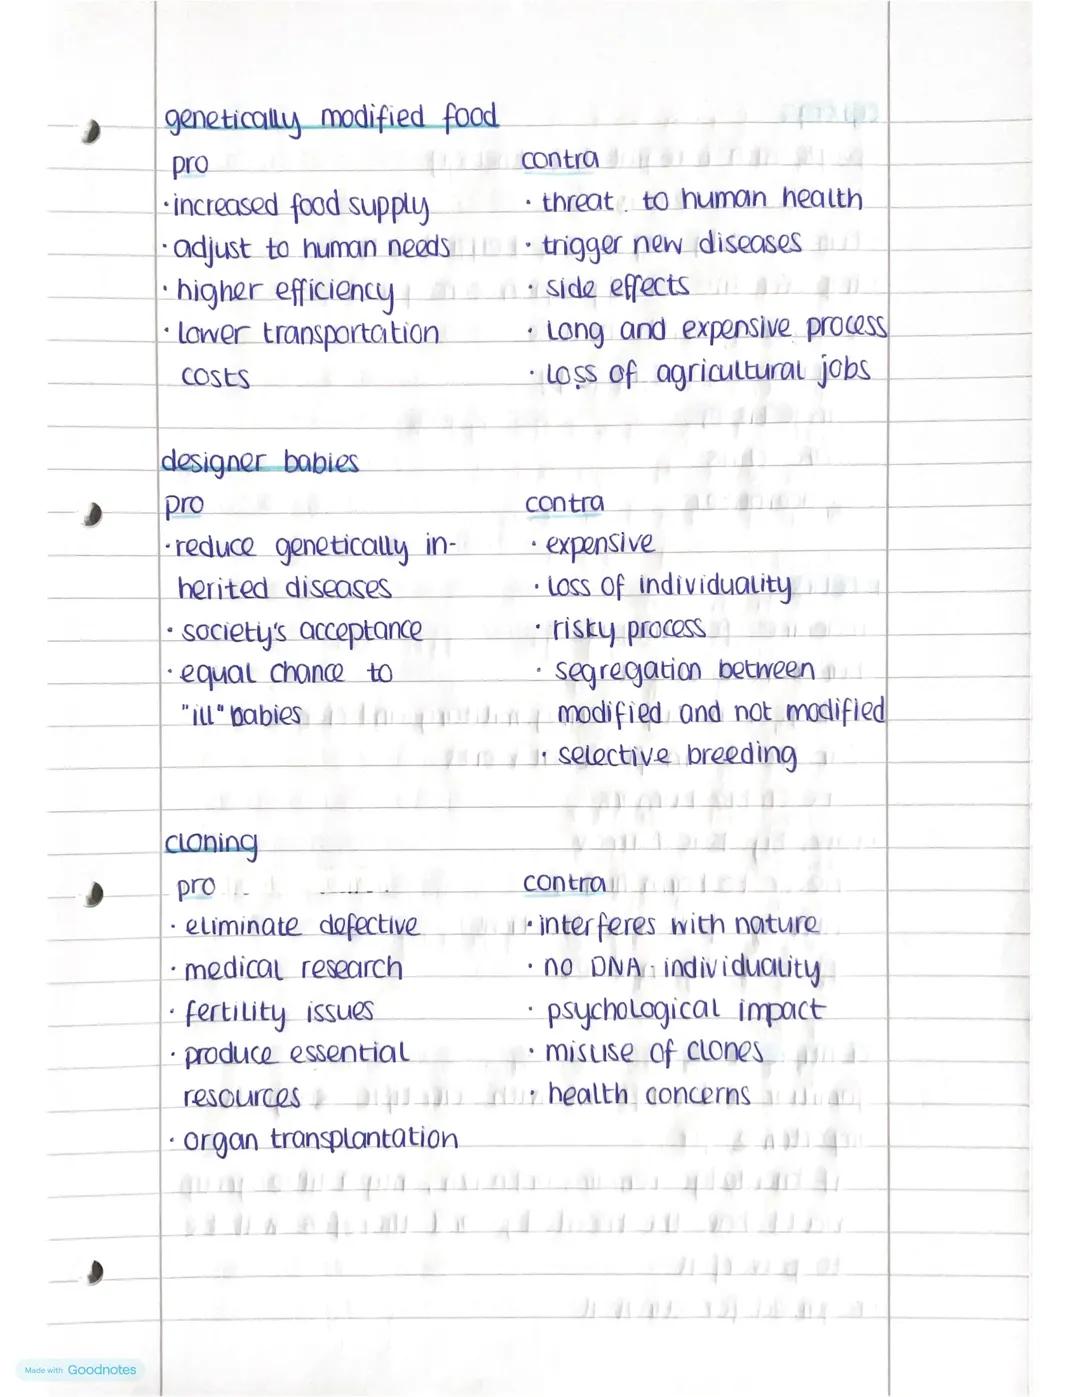 genetically modified food
pro contra
· increased food supply · threat to human health
· adjust to human needs · trigger new diseases
· higher efficiency · side effects
· lower transportation · long and expensive process
costs · loss of agricultural jobs
designer babies
pro contra
· reduce genetically in- · expensive
herited diseases · loss of individuality
· society's acceptance · risky process
· equal chance to · segregation between
"ill" babies modified and not modified
· selective breeding
cloning
pro contra
· eliminate defective · interferes with nature
· medical research · no DNA individuality
· fertility issues · psychological impact
· produce essential · misuse of clones
resources · health concerns
· organ transplantation
Made with Goodnotes